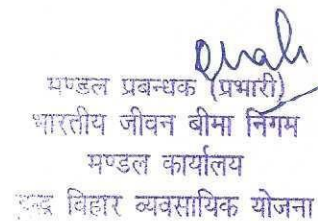 मण्डल प्रबन्धक (प्रभारी)
भारतीय जीवन बीमा निगम
मण्डल कार्यालय
विहार व्यवसायिक योजना